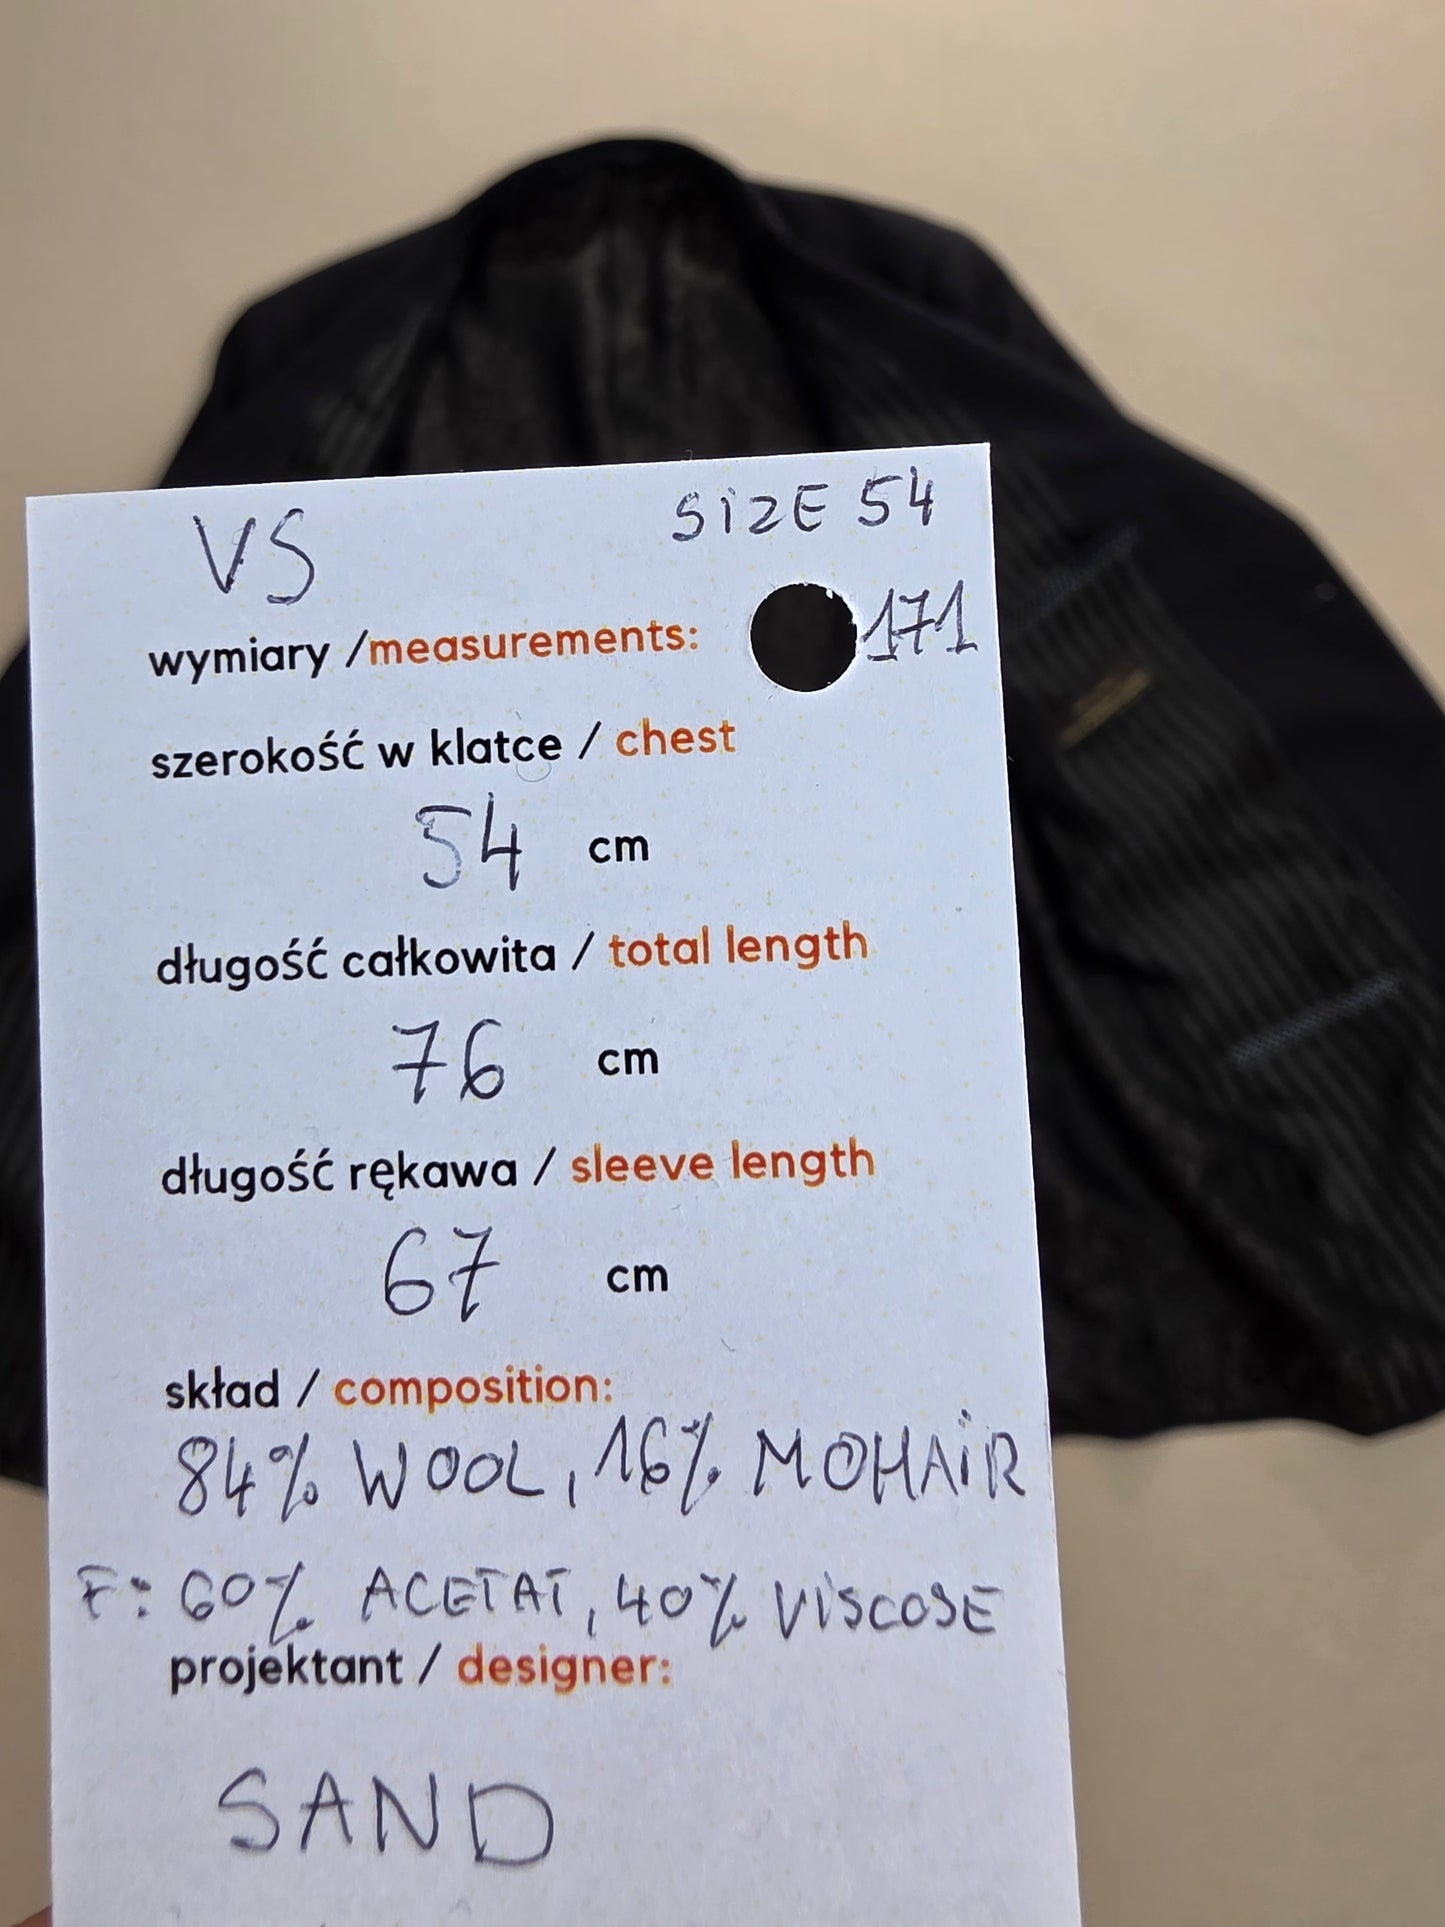 VS SIZE 54
wymiary /measurements: 171
szerokość w klatce / chest
54 cm
długość całkowita / total length
76 cm
długość rękawa / sleeve length
67 cm
skład / composition:
84% WOOL, 16% MOHAIR
F: 60% ACETAT, 40% VISCOSE
projektant / designer:
SAND